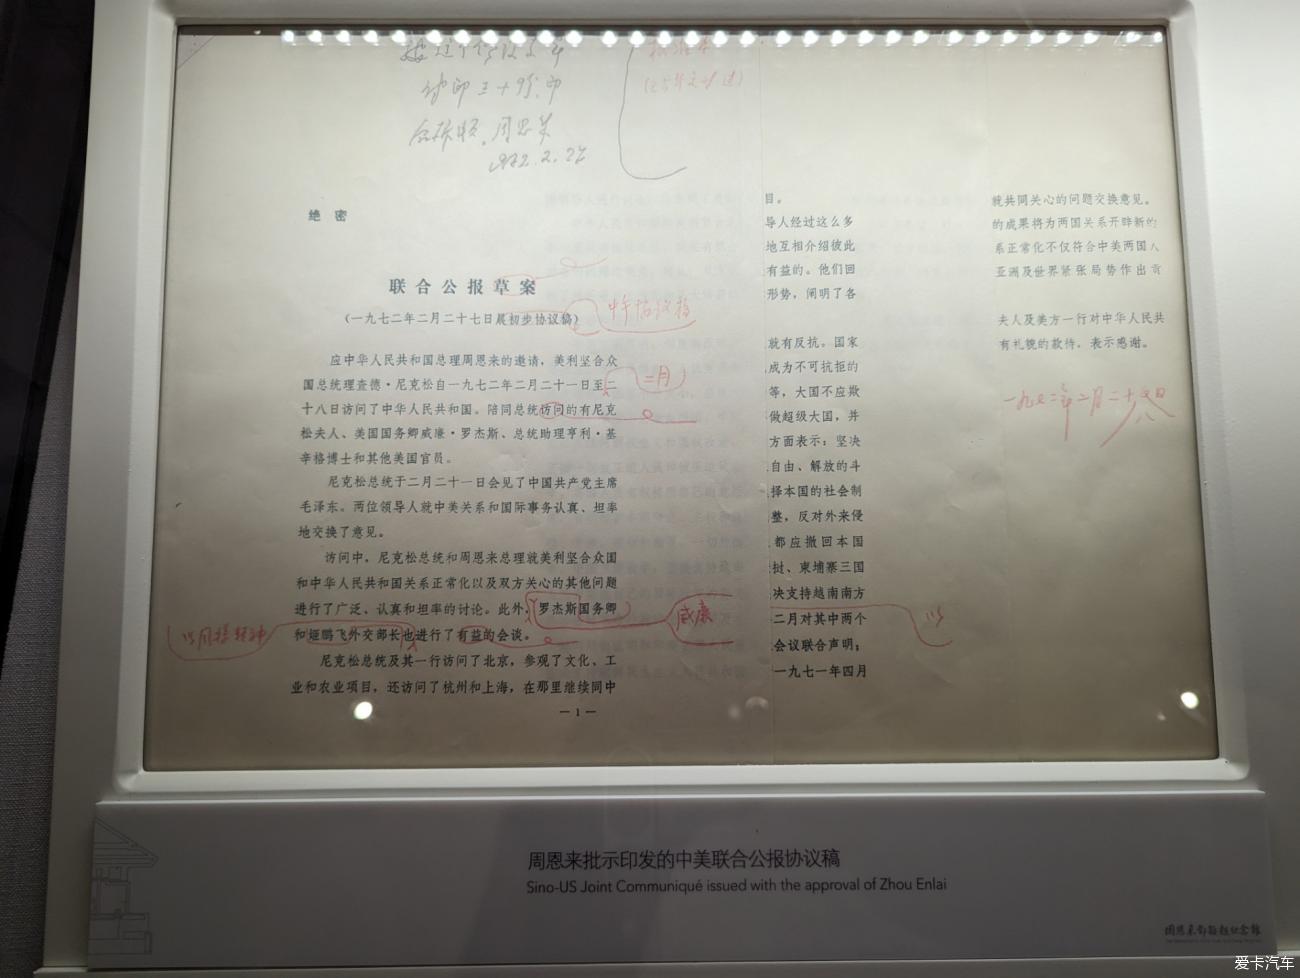 周恩来
1972.2.27
绝 密
联合公报草案
(一九七二年二月二十七日晨初步协议稿)
中午协议稿
应中华人民共和国总理周恩来的邀请，美利坚合众
国总统理查德·尼克松自一九七二年二月二十一日至二
二月
十八日访问了中华人民共和国。陪同总统访问的有尼克
松夫人、美国国务卿威廉·罗杰斯、总统助理亨利·基
辛格博士和其他美国官员。
尼克松总统于二月二十一日会见了中国共产党主席
毛泽东。两位领导人就中美关系和国际事务认真、坦率
地交换了意见。
访问中，尼克松总统和周恩来总理就美利坚合众国
和中华人民共和国关系正常化以及双方关心的其他问题
进行了广泛、认真和坦率的讨论。此外，罗杰斯国务卿
威廉
以同样精神
和姬鹏飞外交部长也进行了有益的会谈。
尼克松总统及其一行访问了北京，参观了文化、工
业和农业项目，还访问了杭州和上海，在那里继续同中
— 1 —
目。
导人经过这么多
地互相介绍彼此
有益的。他们回
形势，阐明了各
就有反抗。国家
成为不可抗拒的
等，大国不应欺
做超级大国，并
方面表示：坚决
自由、解放的斗
择本国的社会制
整，反对外来侵
都应撤回本国
挝、柬埔寨三国
决支持越南南方
二月对其中两个
会议联合声明；
一九七一年四月
就共同关心的问题交换意见。
的成果将为两国关系开辟新的
系正常化不仅符合中美两国人
亚洲及世界紧张局势作出贡
夫人及美方一行对中华人民共
有礼貌的款待，表示感谢。
一九七二年二月二十八日
周恩来批示印发的中美联合公报协议稿
Sino-US Joint Communiqué issued with the approval of Zhou Enlai
周恩来邓颖超纪念馆
爱卡汽车